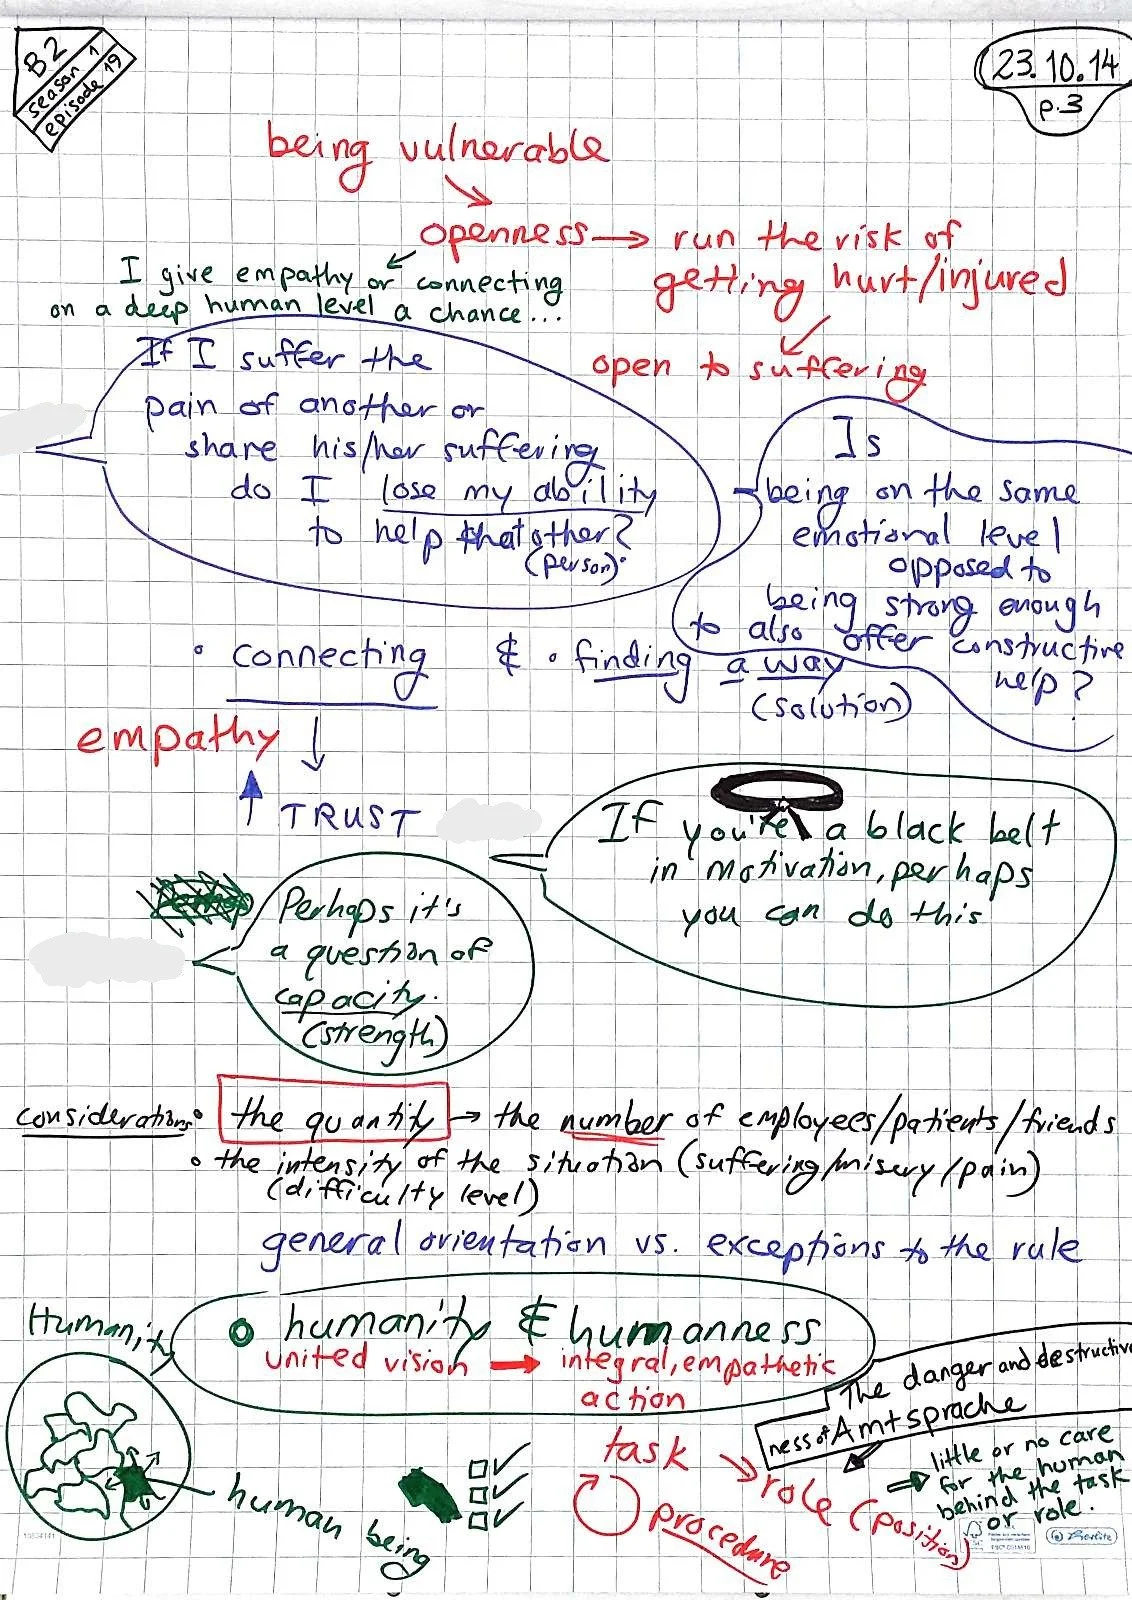 B2
season 1
episode 19
23.10.14
p.3
being vulnerable
openness → run the risk of
getting hurt/injured
I give empathy or connecting
on a deep human level a chance...
open to suffering
If I suffer the
pain of another or
share his/her suffering
do I lose my ability
to help that other?
(person)
Is
being on the same
emotional level
opposed to
being strong enough
to also offer constructive
help?
• connecting & • finding a way
(solution)
empathy
TRUST
If you're a black belt
in motivation, perhaps
you can do this
Perhaps it's
a question of
capacity.
(strength)
considerations • the quantity → the number of employees/patients/friends
• the intensity of the situation (suffering/misery/pain)
(difficulty level)
general orientation vs. exceptions to the rule
Humanity
humanity & humanness
united vision → integral, empathetic
action
The danger and destructive
ness of Amtsprache
human being
task
role (position)
procedure
⇒ little or no care
for the human
behind the task
or role.
Berlitz